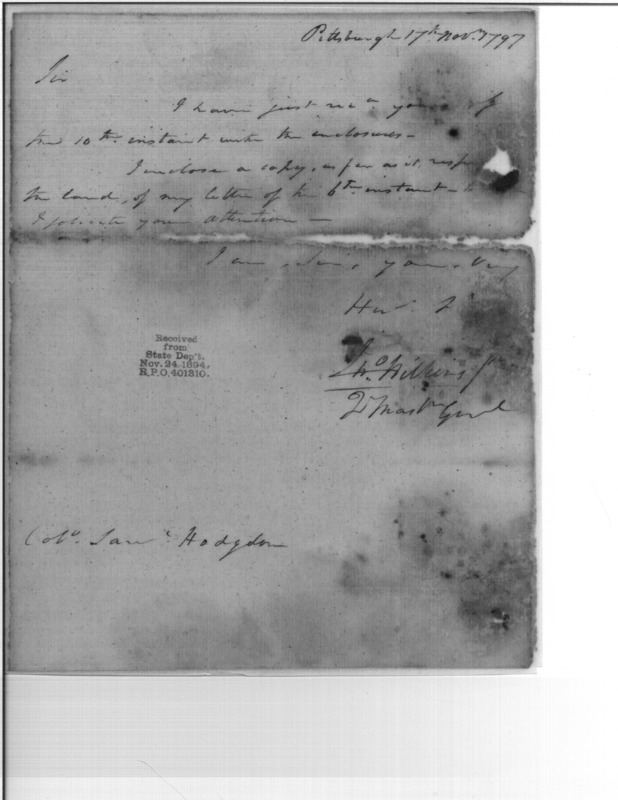 Pittsburgh 17th Novr. 1797
Sir
I have just rec'd yours of
the 10th instant with the enclosures -
I enclose a copy, as far as it resp
the land, of my letter of the 6th instant - to
I solicit your attention -
I am, Sir, your Very
Hue
Jno. Wilkins Jr.
Qr Mastr Genrl
Received
from
State Dep't.
Nov. 24, 1894,
R.P.O. 401310.
Colo. Saml. Hodgdon